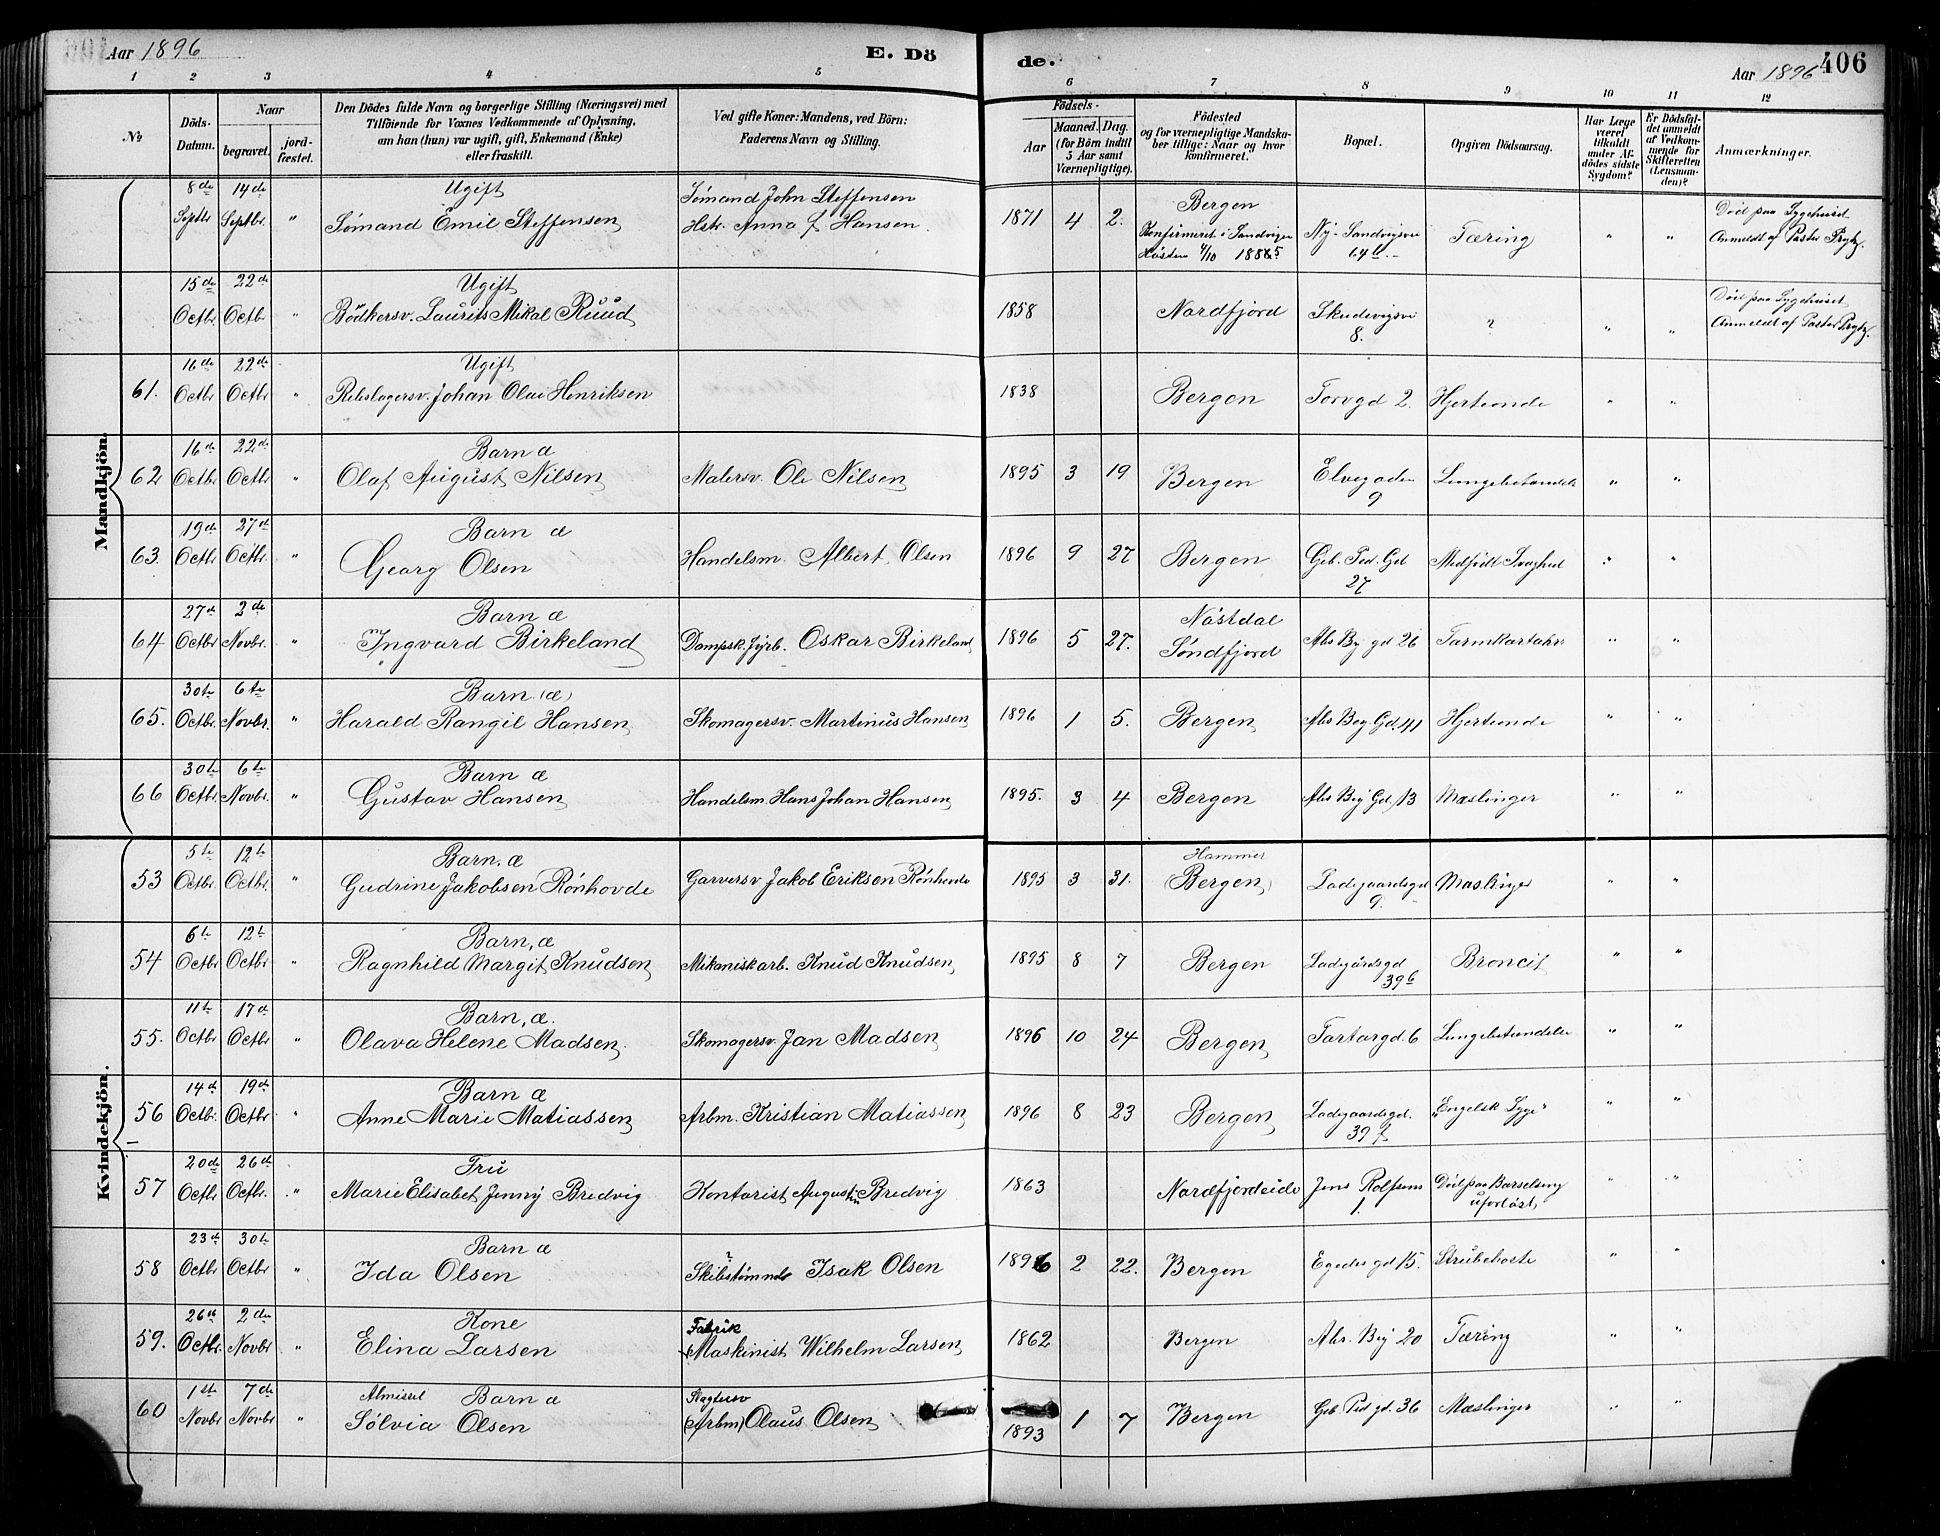 Aar 1896
E. Dö
de.
Aar 1896
406
1 2 3 4 5 6 7 8 9 10 11 12
№
Döds-
Datum.
Naar
begravet.
jord-
fæstet.
Den Dödes fulde Navn og borgerlige Stilling (Næringsvei) med
Tilföiende for Voxnes Vedkommende af Oplysning,
om han (hun) var ugift, gift, Enkemand (Enke)
eller fraskilt.
Ved gifte Koner: Mandens, ved Börn:
Faderens Navn og Stilling.
Födsels-
Aar
Maaned. Dag.
(for Börn indtil
5 Aar samt
Værnepligtige).
Födested
og for værnepligtige Mandska-
ber tillige: Naar og hvor
konfirmeret.
Bopæl.
Opgiven Dödsaarsag.
Har Læge
været
tilkaldt
under Af-
dödes sidste
Sygdom?
Er Dödsfal-
det anmeldt
af Vedkom-
mende for
Skifteretten
(Lensman-
den)?
Anmærkninger.
Mandkjön.
8de 14de Ugift Sømand John Steffensen
Septbr Septbr. " Sømand Emil Steffensen Hstr. Anna f Hansen. 1871 4 2. Bergen
Konfirmeret i Sandvigen
Høsten 4/10 1885 Ny-Sandvigsvei
64 b. Tæring " " Död paa Sygehuset
Anmeldt af Pastor Prytz.
15de 22de Ugift
Octbr. Octb. " Bödkersv. Laurits Mikal Ruud 1858 Nordfjord Skudevigsvei
8. ? " " Död paa Sygehuset
Anmeldt af Pastor Prytz.
16de 22de Ugift
61. Octbr Octbr " Rebslagersv. Johan Olai Henriksen 1838 Bergen Torvgd 2. Hjerteonde " "
16de 22de Barn æ
62 Octbr. Octbr " Olaf August Nilsen Malersv. Ole Nilsen 1895 3 19 Bergen Elvegaden
9 Lungebetændelse " "
19de 27de Barn æ
63. Octbr Octbr. " Georg Olsen Handelsm. Albert Olsen 1896 9 27 Bergen Geb. Ped. Gd
27 Medfödt Svaghed " "
27de 2de Barn æ
64 Octbr Novbr. " Ingvard Birkeland Dampsk. fyrb. Oskar Birkeland 1896 5 27. Nöstdal
Söndfjord Ahs By gd 26 Tarmkatarh " "
30te 6te Barn (æ)
65. Octbr. Novbr. " Harald Rangil Hansen Skomagersv. Martinus Hansen 1896 1 5. Bergen Ahs Boy Gd. 41 Hjerteonde " "
30te 6te Barn æ
66 Octbr. Novbr. " Gustav Hansen Handelsm. Hans Johan Hansen 1895. 3 4 Bergen Ahs Bøy Gd 13 Mæslinger " "
Kvindekjön.
5te 12te Barn. æ
53 Octbr. Octbr. " Gudrine Jakobsen Rönhovde Garversv Jakob Eriksen Rönhovde 1895 3 31. Hammer
(Bergen) Ladegaardsgd
9. Mæslinger " "
6te 12te Barn, æ
54 Octbr Octbr " Ragnhild Margit Knudsen Mikaniskarb. Knud Knudsen 1895 8 7 Bergen Ladegårdsgd
39 b Broncit " "
11te 17de Barn, æ.
55. Octbr Octbr. " Olava Helene Madsen. Skomagersv. Jan Madsen 1896 10 24 Bergen Tartargd. 6 Lungebetændelse " "
14de 19de Barn æ
56 Octbr. Octbr. " Anne Marie Matiassen Arbm. Kristian Matiassen 1896 8 23 Bergen Ladegaardsgd.
39 f „Engelsk Syge" " "
20de 26de Fru
57 Octbr. Octbr. " Marie Elisabet Jenny Bredvig Kontorist August Bredvig 1863 Nordfjordeide Jens Rolfsens
1. Död paa Barselseng
uforløst " "
23de 30te Barn æ
58 Octbr Octbr " Ida Olsen Skibstömmds Isak Olsen 1896 2 22. Bergen Egedes gd 15. Strubehoste " "
26de 2den Kone Fabrik
59. Octbr. Novbr " Elina Larsen (Maskinist Wilhelm Larsen 1862 Bergen Ahs. Boy 20 Tæring " "
1ste 7de Almissel Barn æ Slagtersv
60 Novbr Novbr " Sölvia Olsen (Arbm) Olaus Olsen 1893 1 7 Bergen Geb Ped gd. 36 Mæslinger " "